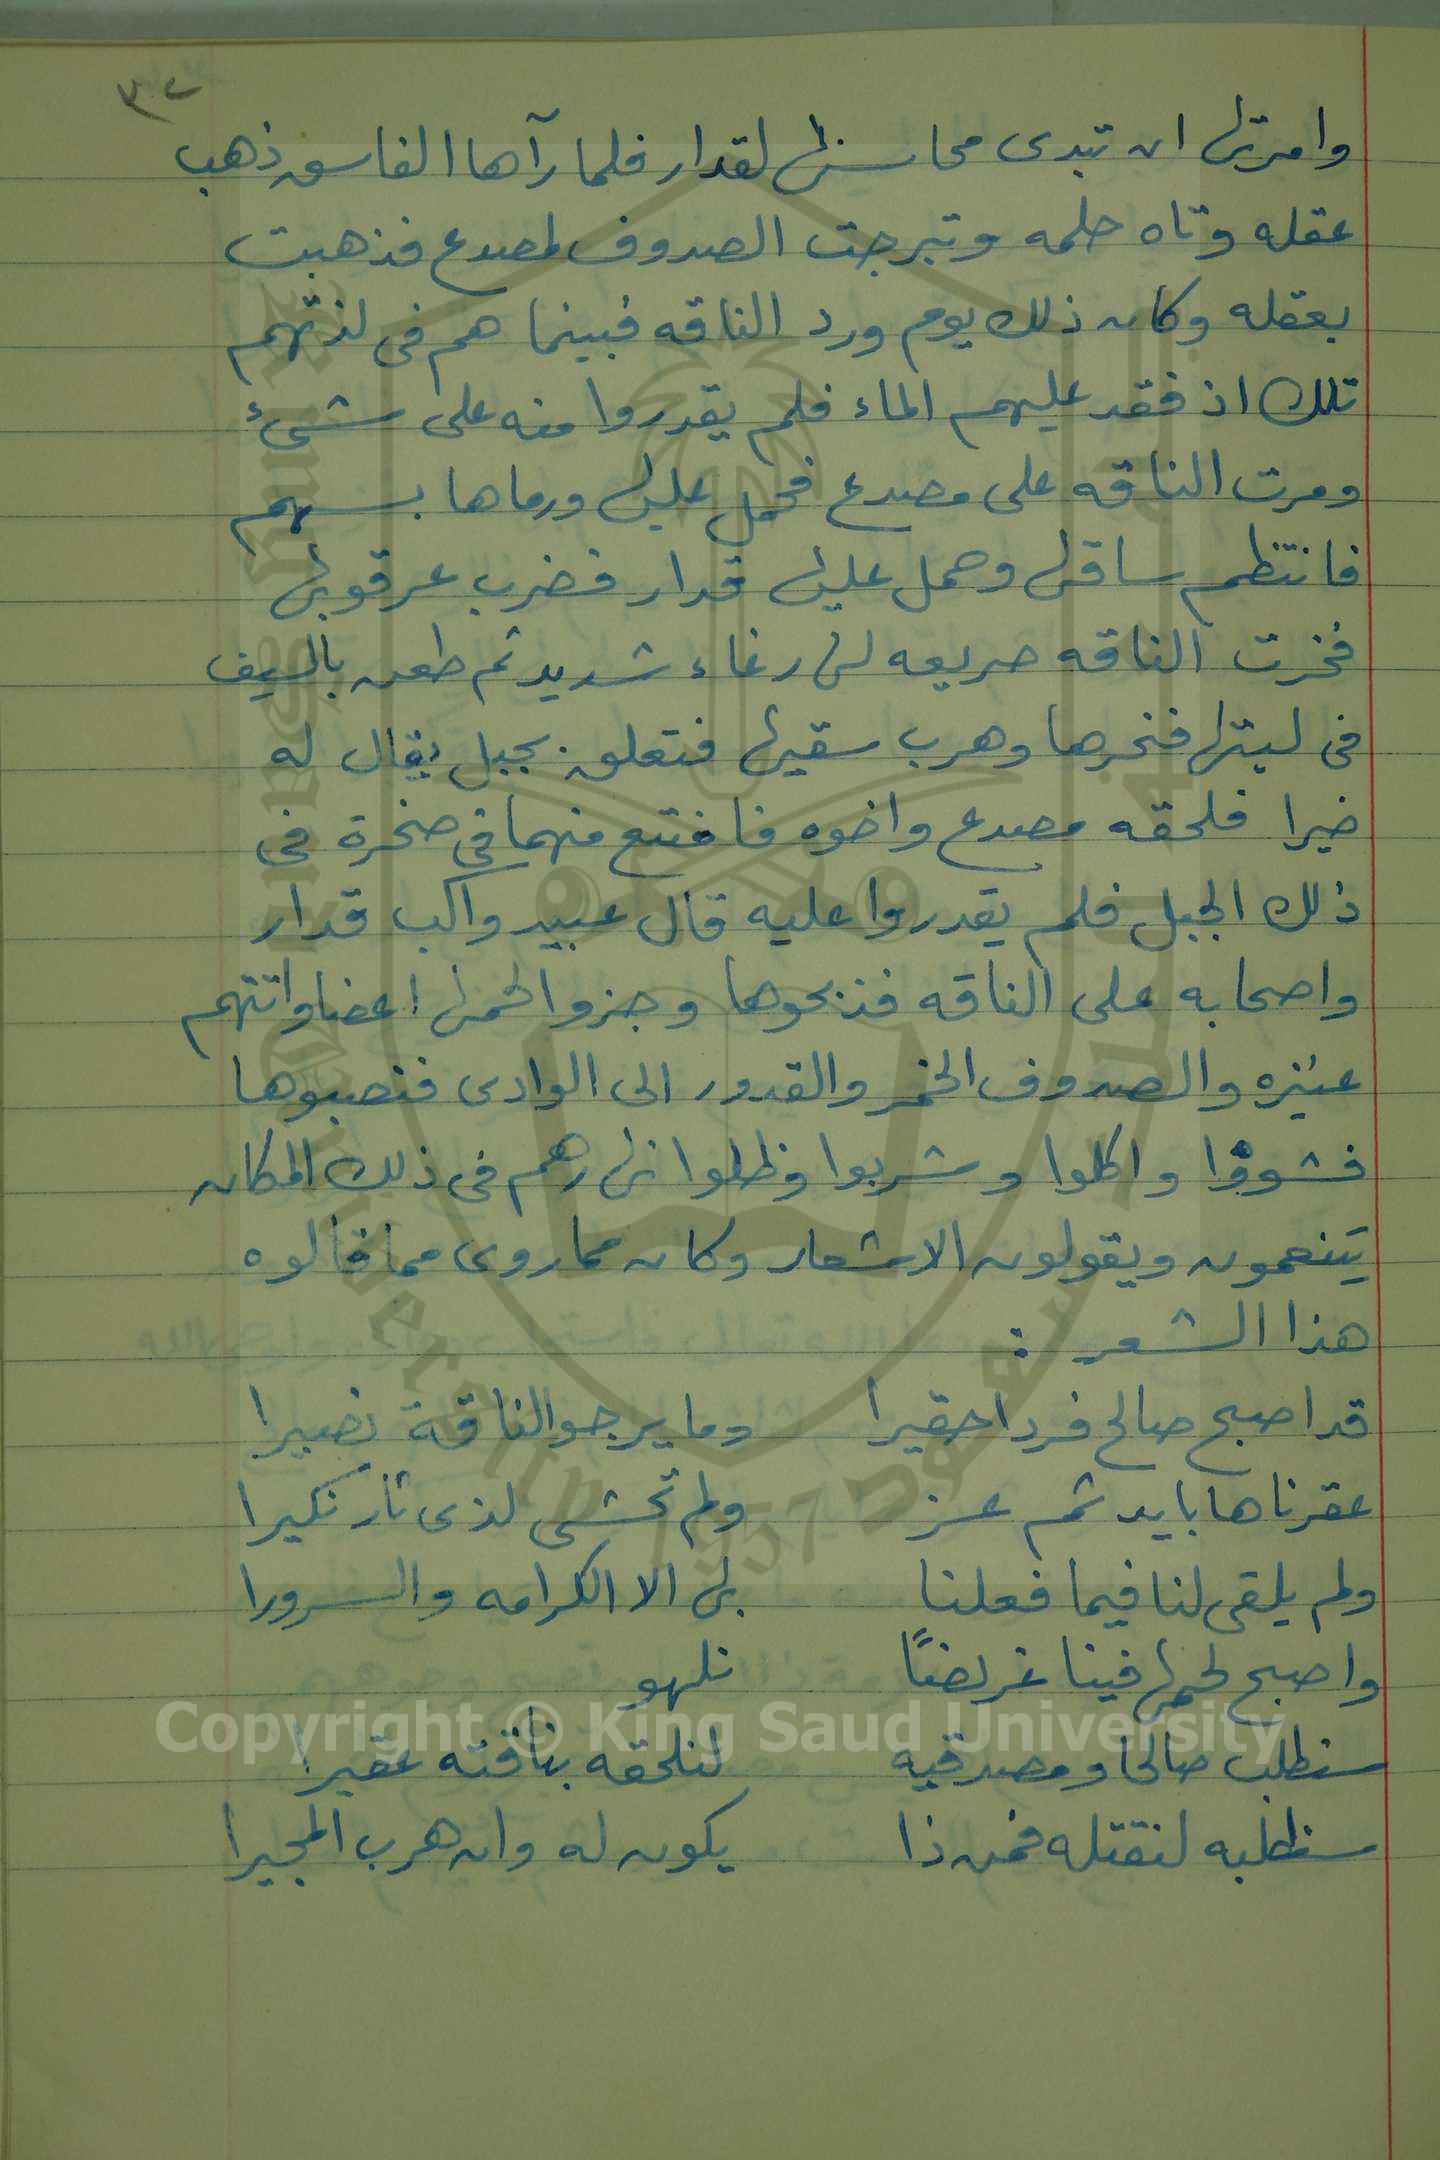 ٣٢
وامرتها ان تبدى محاسنها لقدار فلما رآها الفاسق ذهب
عقله وتاه حلمه وتبرجت الصدوف لمصدع فذهبت
بعقله وكان ذلك يوم ورد الناقه فبينما هم فى لذتهم
تلك اذ فقد عليهم الماء فلم يقدروا منه على شىء
ومرت الناقه على مصدع فحمل عليها ورماها بسهم
فانتظم ساقها وحمل عليها قدار فضرب عرقوبها
فخرت الناقه صريعه لها رغاء شديد ثم طعن بالسيف
فى لبتها فنحرها وهرب سقيها فتعلق بجبل يقال له
ضيرا فلحقه مصدع واخوه فامتنع منهما فى صخرة فى
ذلك الجبل فلم يقدروا عليه قال عبيد واكب قدار
واصحابه على الناقه فذبحوها وجزوا لحمها اعضا واتتهم
عنيزه والصدوف الخمر والقدور الى الوادى فنصبوها
فشووا واكلوا وشربوا وظلوا نهارهم فى ذلك المكان
يتنعمون ويقولون الاشعار وكان مما روى مما قالوه
هذا الشعر :
قد اصبح صالح فردا حقيرا وما يرجو الناقة نصيرا
عقرناها بايد ثم عز ولم تخشى لذى ثار نكيرا
ولم يلقى لنا فيما فعلنا بها الا الكرامه والسرورا
واصبح لحمها فينا غريضًا نلهو
سنطلب صالحا ومصدقيه لنلحقه بناقته عقيرا
سنطلبه لنقتله فمن ذا يكون له وان هرب المجيرا
Copyright © King Saud University
1957